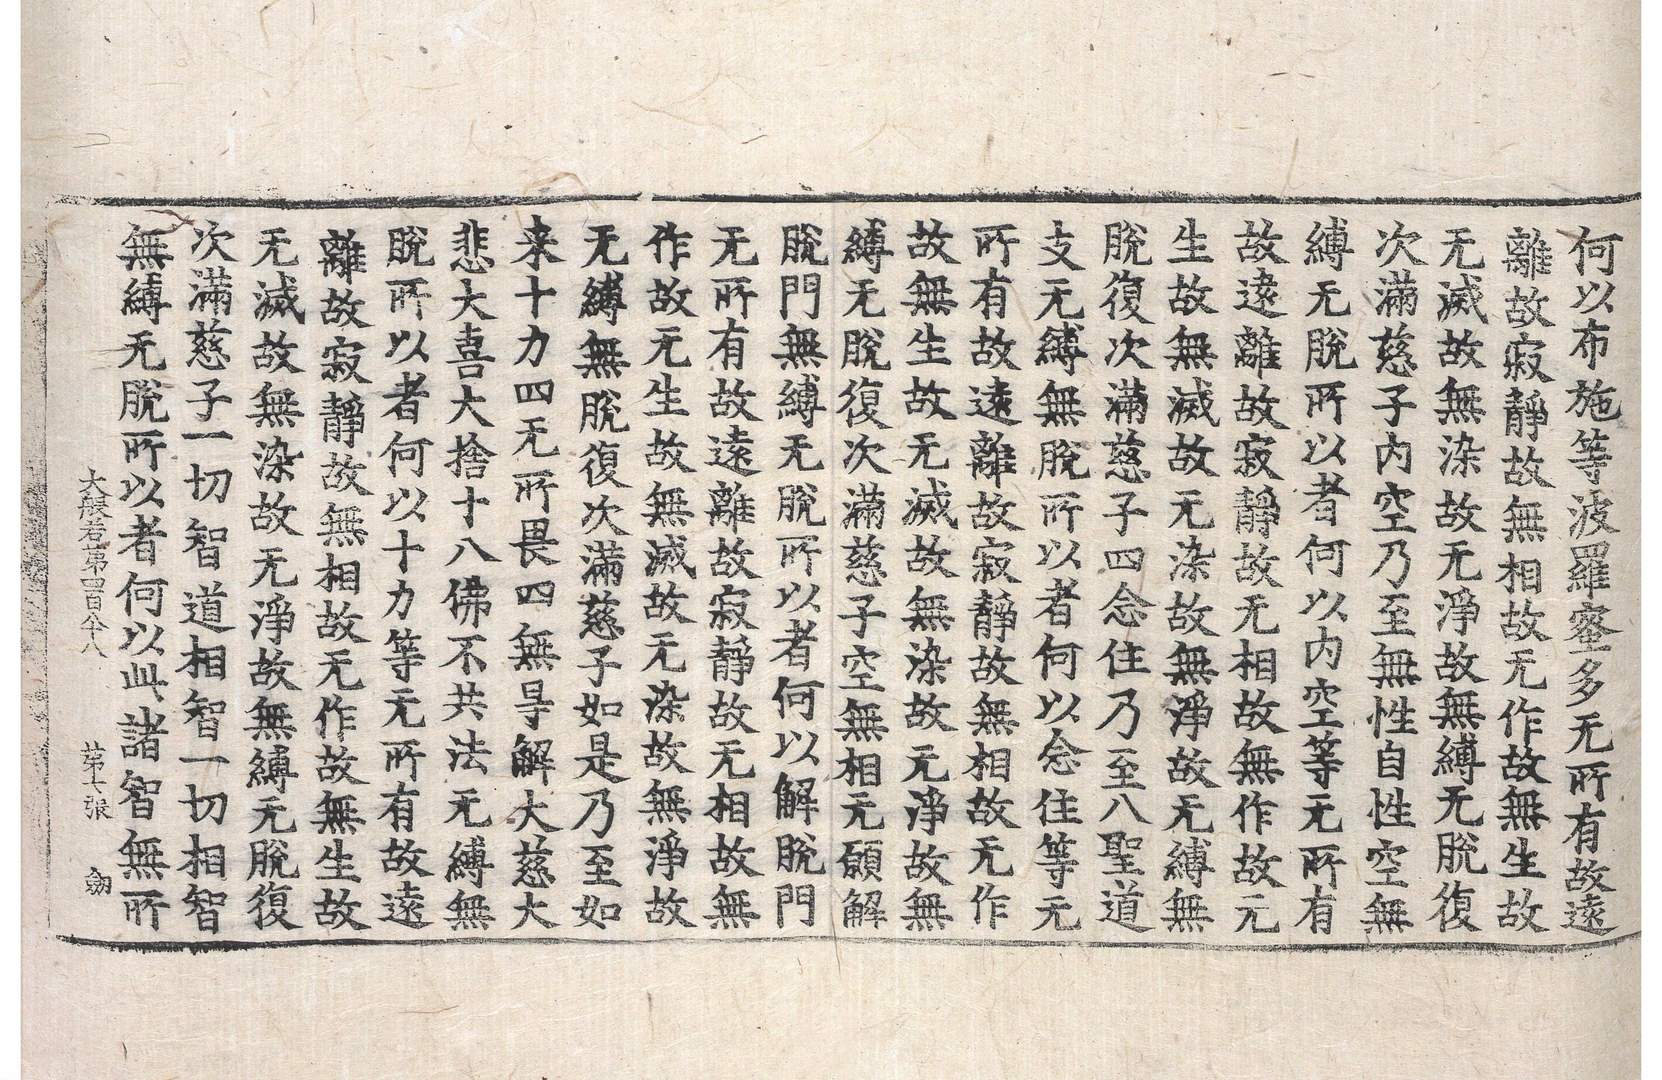 何以布施等波羅蜜多无所有故遠
離故寂靜故無相故无作故無生故
无滅故無染故无淨故無縛无脫復
次滿慈子內空乃至無性自性空無
縛无脫所以者何以內空等无所有
故遠離故寂靜故无相故無作故无
生故無滅故无染故無淨故无縛無
脫復次滿慈子四念住乃至八聖道
支无縛無脫所以者何以念住等无
所有故遠離故寂靜故無相故无作
故無生故无滅故無染故无淨故無
縛无脫復次滿慈子空無相无願解
脫門無縛无脫所以者何以解脫門
无所有故遠離故寂靜故无相故無
作故无生故無滅故无染故無淨故
无縛無脫復次滿慈子如是乃至如
来十力四无所畏四無㝵解大慈大
悲大喜大捨十八佛不共法无縛無
脫所以者何以十力等无所有故遠
離故寂靜故無相故无作故無生故
无滅故無染故无淨故無縛无脫復
次滿慈子一切智道相智一切相智
無縛无脫所以者何以此諸智無所
大般若第四百令八 第 張